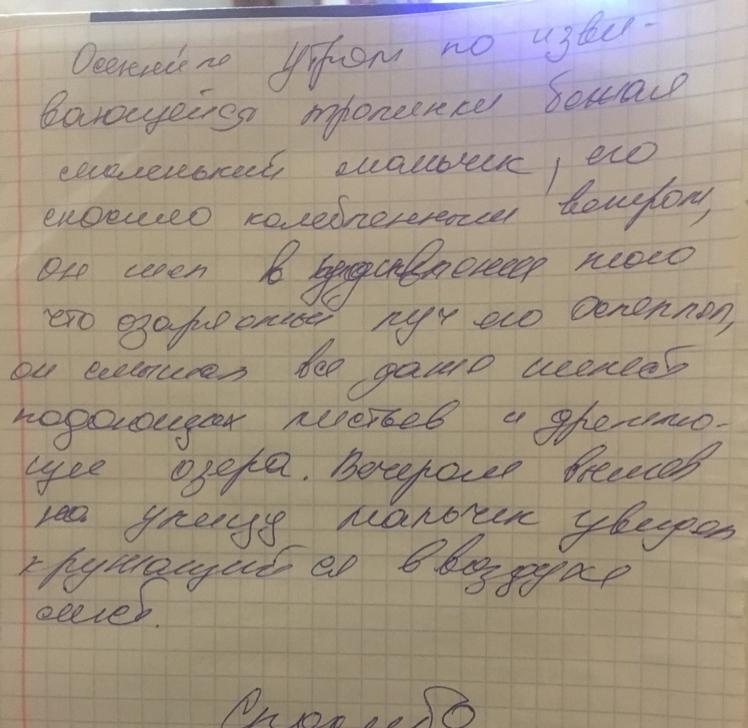 Осенним утром по изви-
вающейся тропинки бежал
маленький мальчик, его
сносило колебленным ветром,
он шел в том
что озаряемый луч его ослеплял,
он слышал все даже шелест
падающих листьев и дремлю-
щие озера. Вечером вышев
на улицу мальчик увидел
кружащийся в воздухе
снег.
Спасибо